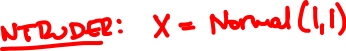 NTRUDER: X = Normal (1,1)